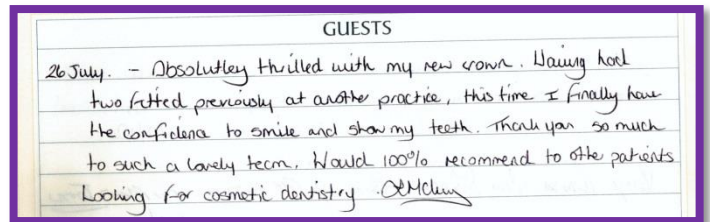 GUESTS
26 July. - Absolutley thrilled with my new crown. Having had
two fitted previously at another practice, this time I finally have
the confidence to smile and show my teeth. Thank you so much
to such a lovely team. Would 100% recommend to othe patients
Looking for cosmetic dentistry